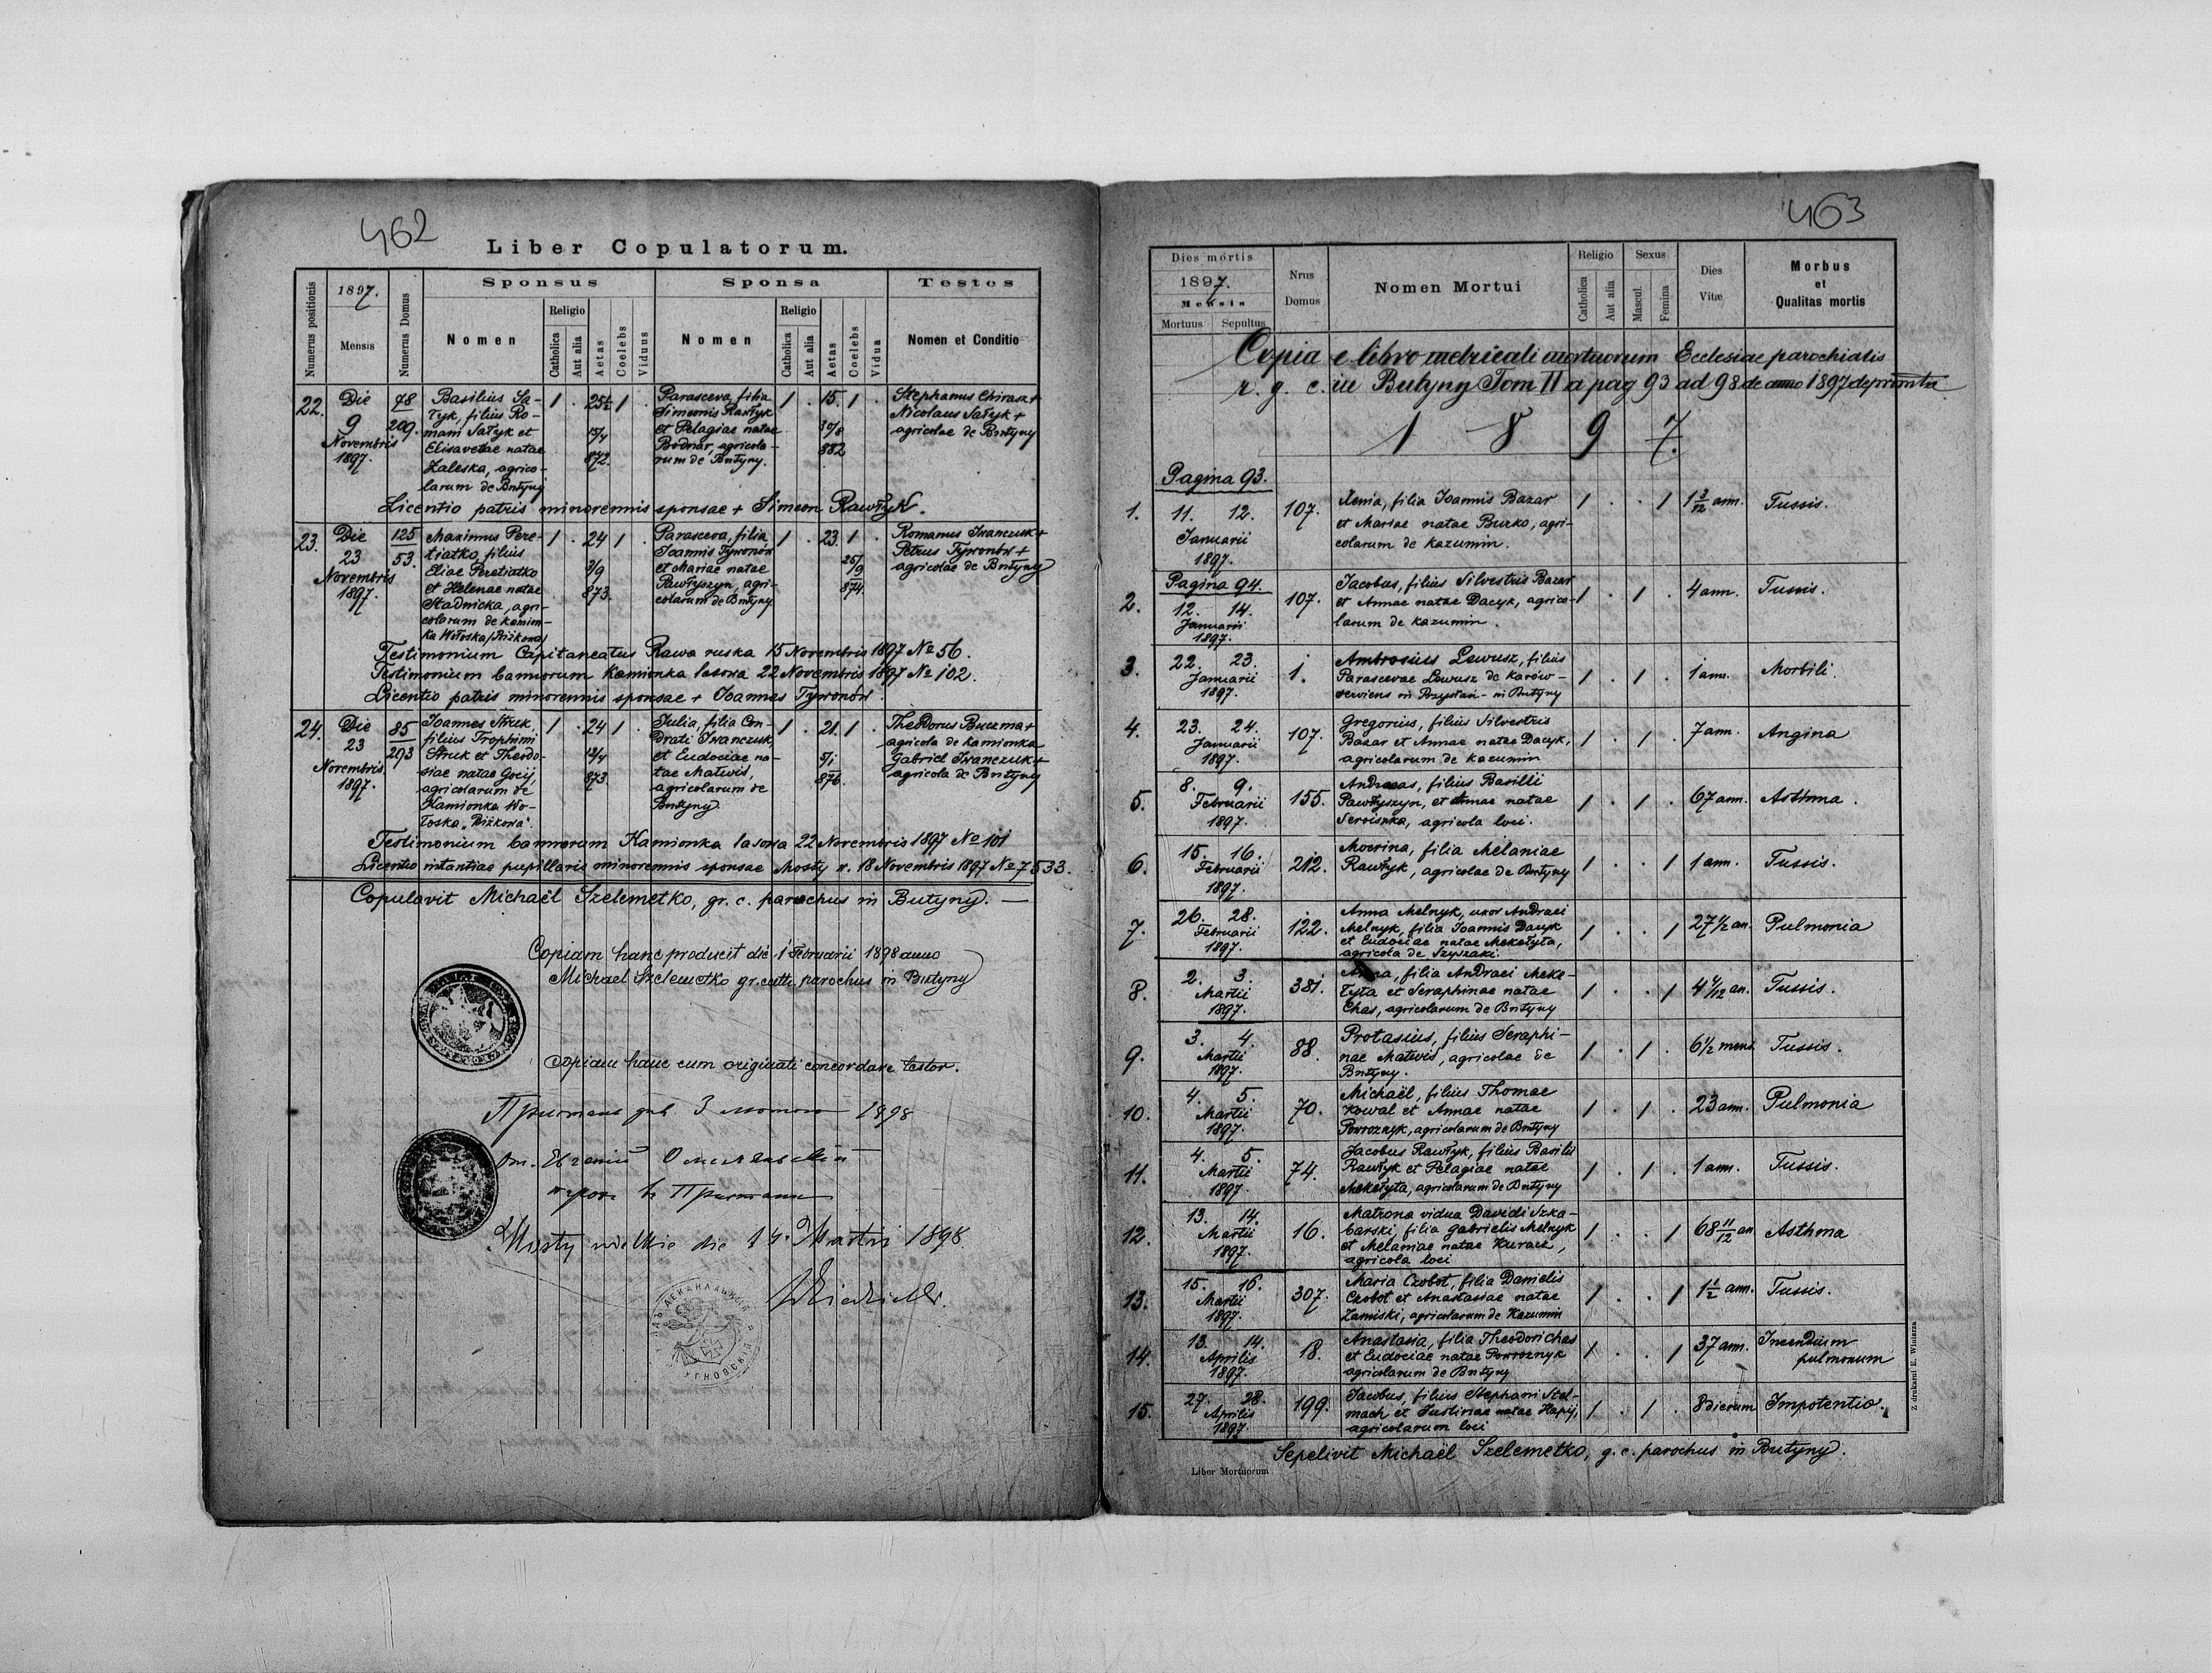 462
Liber Copulatorum.
Numerus positionis
1897.
Mensis
Numerus Domus
Sponsus
Nomen
Religio
Catholica
Aut alia
Aetas
Coelebs
Viduus
Sponsa
Nomen
Religio
Catholica
Aut alia
Aetas
Coelebs
Vidua
Testes
Nomen et Conditio
22.
Die
9
Novembris
1897.
78
209.
Basilius Sa-
łyk, filius Ro-
mani Sałyk et
Elisavetae natae
Zaleska, agrico-
larum de Butyny
1 . 25½ 1 .
15/4
872.
Parasceva, filia
Simeonis Rawłyk
et Pelagiae natae
Bodnar, agricola-
rum de Butyny.
1 . 15. 1 .
30/8
882
Stephanus Chirasz +
Nicolaus Sałyk +
agricolae de Butyny
Licentio patris minorennis sponsae + Simeon Rawłyk.
23.
Die
23
Novembris
1897.
125
53.
Maximus Pere-
tiatko, filius
Eliae Peretiatko
et Helenae natae
Stadnicka, agri-
colarum de Kamion-
ka Wołoska
1 . 24 1 .
3/9
873.
Parasceva, filia
Joannis Tywonów
et Mariae natae
Pawłyszyn, agri-
colarum de Butyny
1 . 23. 1 .
25/9
874.
Romanus Iwanczuk +
Petrus Tywonów +
agricolae de Butyny
Testimonium Capitaneatus Rawa ruska 15 Novembris 1897 No 56.
Testimonium bannorum Kamionka lasowa 22 Novembris 1897 No 102.
Licentio patris minorennis sponsae + Joannes Tywonów
24.
Die
23
Novembris
1897.
85
293
Joannes Struk
filius Trophimi
Struk et Theodo-
siae natae Gocij,
agricolarum de
Kamionka Wo-
łoska „Bizkowa".
1 . 24 1 .
12/4
873
Julia, filia Con-
drati Iwanczuk,
et Eudociae na-
tae Matwis,
agricolarum de
Butyny
1 . 21. 1 .
5/1
876.
Theodorus Buczma +
agricola de Kamionka
Gabriel Iwanczuk +
agricola de Butyny
Testimonium bannorum Kamionka lasowa 22 Novembris 1897 No 101
Licentio instantiae pupillaris minorennis sponsae Mosty w. 18 Novembris 1897 No 7533.
Copulavit Michaël Szelemetko, gr. c. parochus in Butyny. —
Copiam hanc producit die 1 Februarii 1898 anno
Michael Szelemetko gr. catt. parochus in Butyny
Copiam hanc cum originali concordare testor.
3 лютого 1898
Mosty wielkie die 14. Martii 1898
463
Dies mortis
1897.
Mensis
Mortuus
Sepultus
Nrus
Domus
Nomen Mortui
Religio
Catholica
Aut alia
Sexus
Mascul.
Femina
Dies
Vitæ
Morbus
et
Qualitas mortis
Copia e libro metricali mortuorum Ecclesiae parochialis
r. g. c. in Butyny Tom II a pag 93 ad 98 de anno 1897 deprompta
1 8 9 7.
Pagina 93.
1.
11. 12.
Januarii
1897.
107.
Xenia, filia Joannis Bazar
et Mariae natae Burko, agri-
colarum de Kazumin.
1 . . 1
1 3/12 ann.
Tussis.
Pagina 94.
2.
12. 14.
Januarii
1897.
107.
Jacobus, filius Silvestris Bazar
et Annae natae Dacyk, agrico-
larum de Kazumin.
1 . 1 .
4 ann.
Tussis.
3.
22. 23.
Januarii
1897.
1.
Ambrosius Lewusz, filius
Parascevae Lewusz de Karów -
serviens in Przystań - in Butyny
1 . 1 .
1 ann.
Morbili.
4.
23. 24.
Januarii
1897.
107.
Gregorius, filius Silvestris
Bazar et Annae natae Dacyk,
agricolarum de Kazumin
1 . 1 .
7 ann.
Angina
5.
8. 9.
Februarii
1897.
155.
Andreas, filius Basilii
Pawłyszyn, et Annae natae
agricola loci.
1 . 1 .
67 ann.
Asthma.
6.
15. 16.
Februarii
1897.
212.
Mocrina, filia Melaniae
Rawłyk, agricolae de Butyny
1 . . 1
1 ann.
Tussis.
7.
26. 28.
Februarii
1897.
122.
Anna Melnyk, uxor Andreei
Melnyk, filia Joannis Dacyk
et Eudociae natae Mekełyta,
agricola de Szyszaki.
1 . . 1
27 1/2 an.
Pulmonia
8.
2. 3.
Martii
1897.
381.
Anna, filia Andreei Meke-
łyta et Seraphinae natae
Chas, agricolarum de Butyny
1 . . 1
4 4/12 an.
Tussis.
9.
3. 4.
Martii
1897.
88.
Protasius, filius Seraphi-
nae Matwis, agricolae de
Butyny.
1 . 1 .
6 1/2 mens.
Tussis.
10.
4. 5.
Martii
1897.
70.
Michaël, filius Thomae
Kowal et Annae natae
Powroznyk, agricolarum de Butyny
1 . 1 .
23 ann.
Pulmonia
11.
4. 5.
Martii
1897.
74.
Jacobus Rawłyk, filius Basilii
Rawłyk et Pelagiae natae
Mekełyta, agricolarum de Butyny
1 . 1 .
1 ann.
Tussis.
12.
13. 14.
Martii
1897.
16.
Matrona vidua Davidi Szka-
barski, filia Gabrielis Melnyk
et Melaniae natae Kuracz,
agricola loci
1 . . 1
68 11/12 an
Asthma
13.
15. 16.
Martii
1897.
307.
Maria Czobot, filia Danielis
Czobot et Anastasiae natae
Zamiski, agricolarum de Kazumin
1 . . 1
1 1/2 ann.
Tussis.
14.
13. 14.
Aprilis
1897.
18.
Anastasia, filia Theodori Chas
et Eudociae natae Powroznyk
agricolarum de Butyny
1 . . 1
37 ann.
Incendium
pulmonum
15.
27. 28.
Aprilis
1897.
199.
Jacobus, filius Stephani Stel-
mach et Justinae natae Hapij,
agricolarum loci
1 . 1 .
8 dierum
Impotentio.
Sepelivit Michaël Szelemetko, g. c. parochus in Butyny.
Liber Mortuorum
Z drukarni E. Winiarza